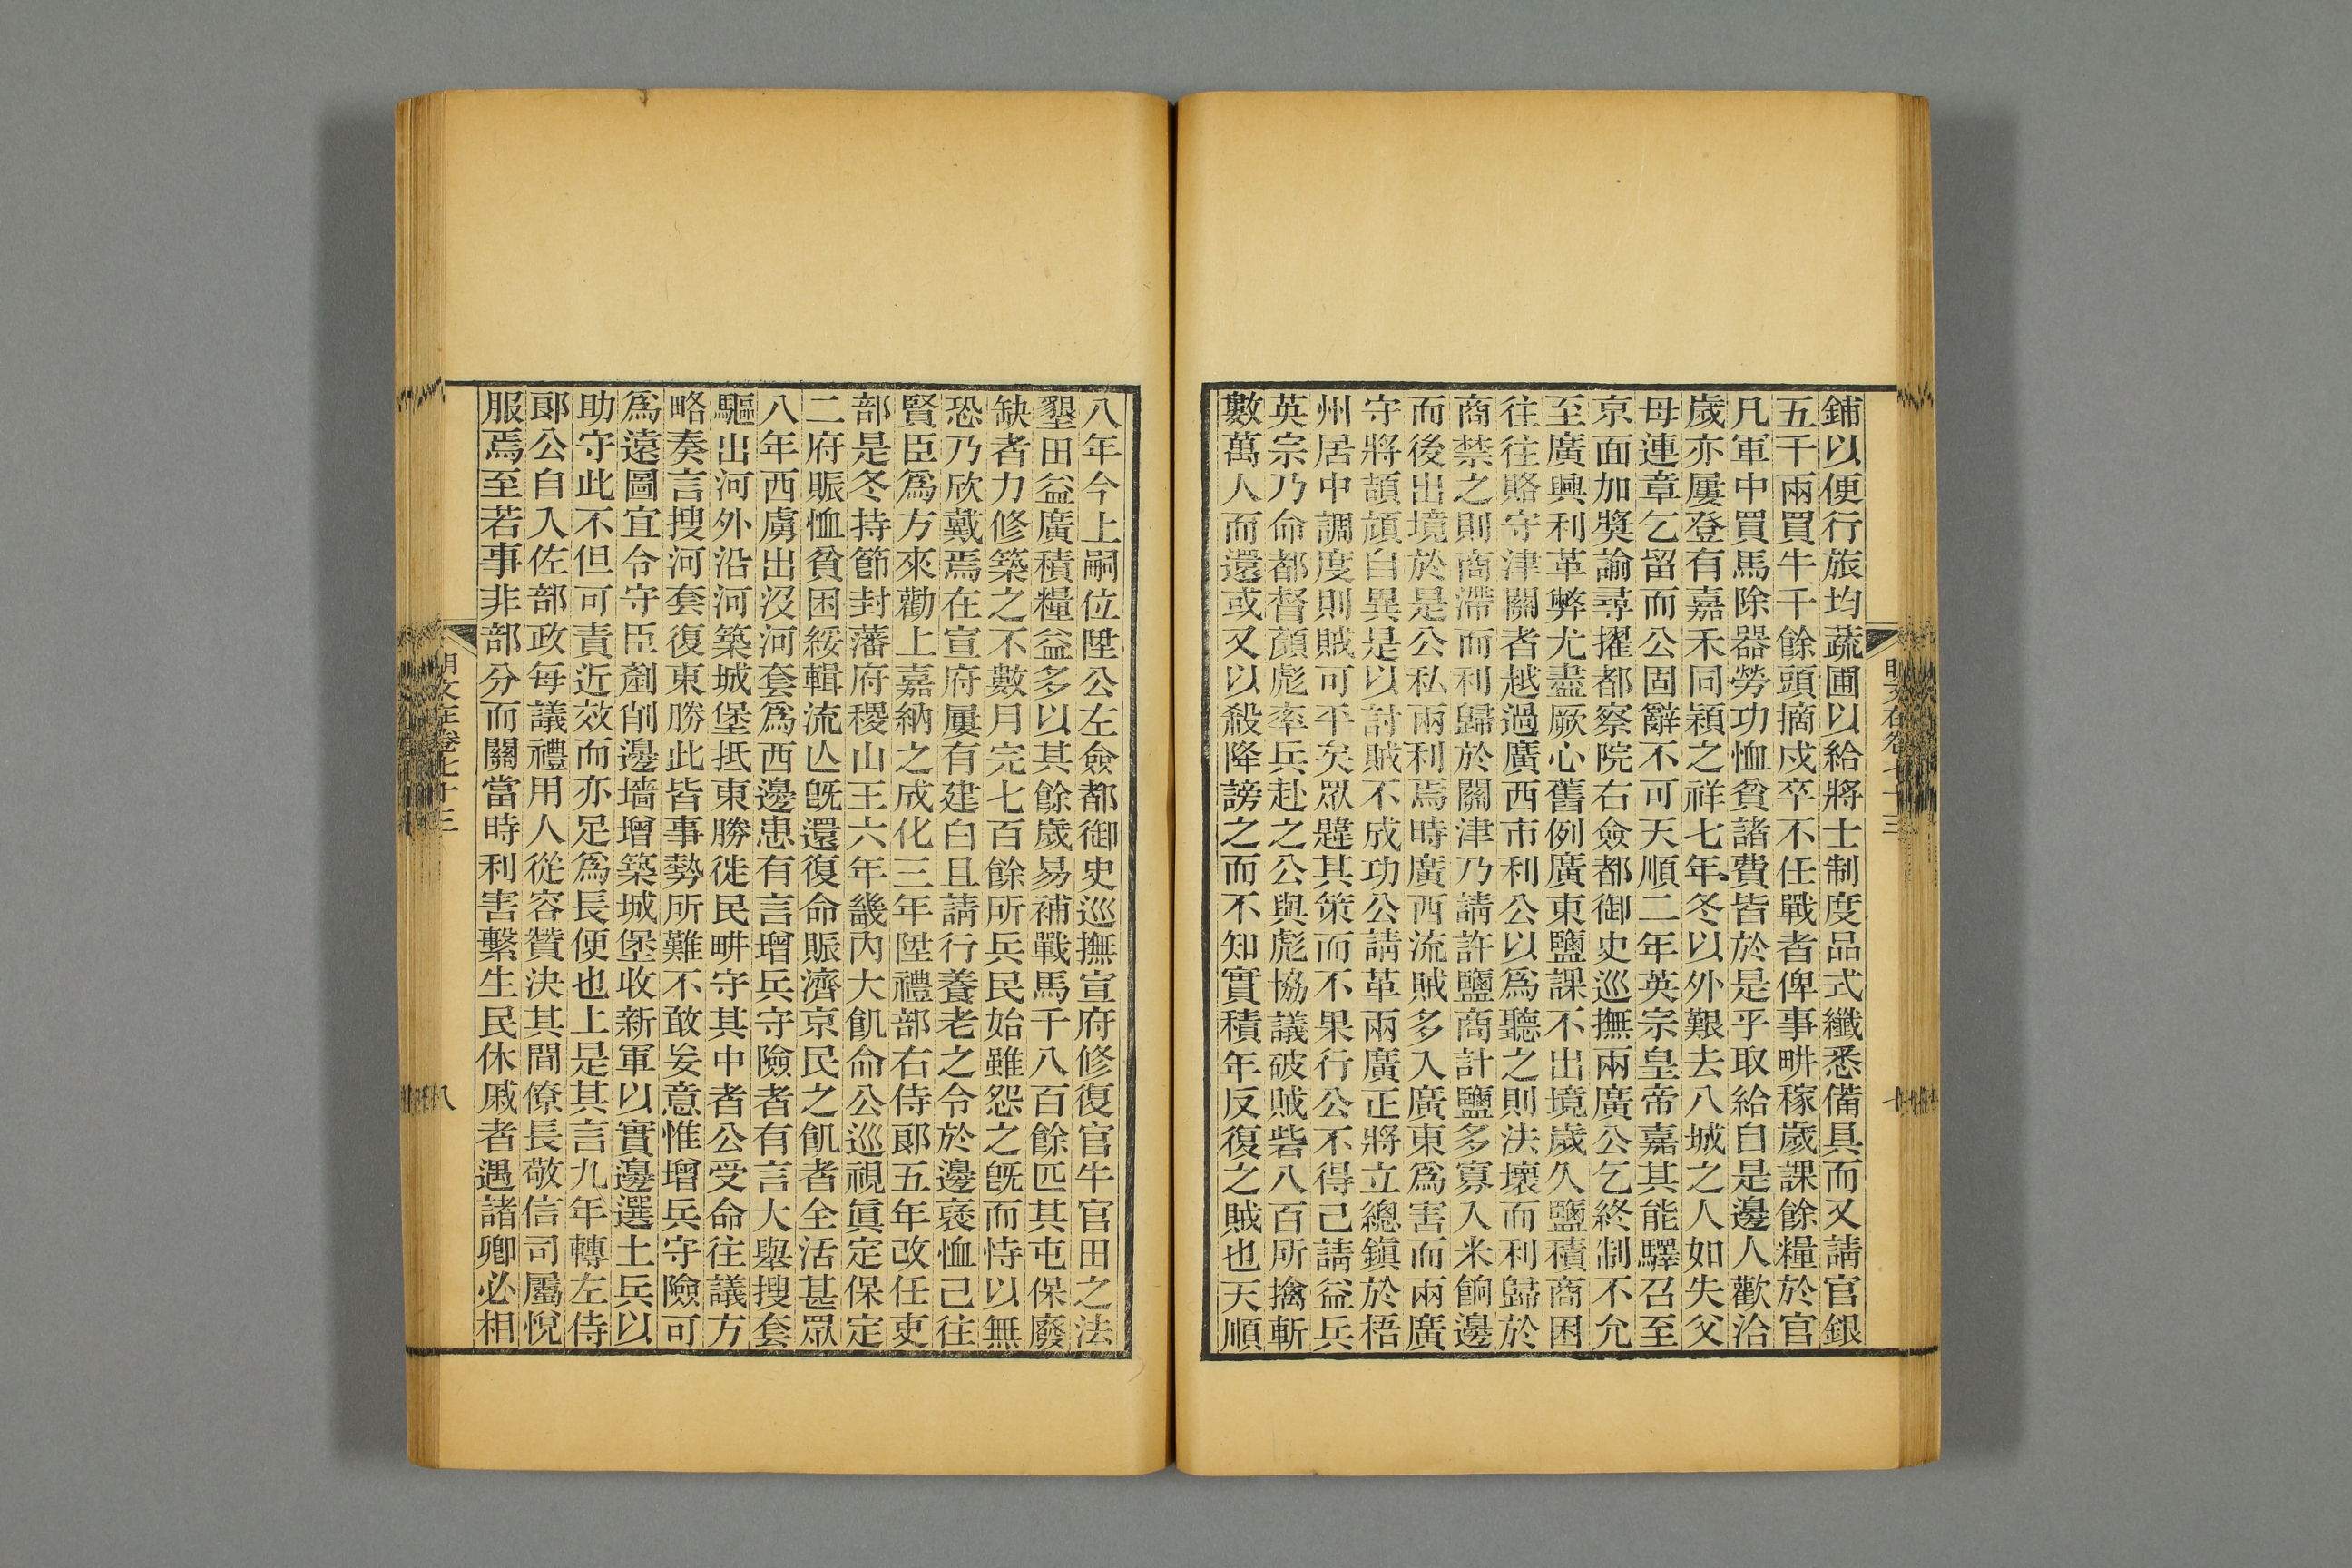 鋪以便行旅均蔬圃以給將士制度品式纖悉備具而又請官銀
五千兩買牛千餘頭摘戍卒不任戰者俾事畊稼歲課餘糧於官
凡軍中買馬除器勞功恤貧諸費皆於是乎取給自是邊人歡洽
歲亦屢登有嘉禾同穎之祥七年冬以外艱去八城之人如失父
母連章乞留而公固辭不可天順二年英宗皇帝嘉其能驛召至
京面加獎諭尋擢都察院右僉都御史巡撫兩廣公乞終制不允
至廣興利革弊尤盡厥心舊例廣東鹽課不出境歲久鹽積商困
往往賂守津關者越過廣西市利公以爲聽之則法壞而利歸於
商禁之則商滯而利歸於關津乃請許鹽商計鹽多寡入米餉邊
而後出境於是公私兩利焉時廣西流賊多入廣東爲害而兩廣
守將頡頏自異是以討賊不成功公請革兩廣正將立總鎭於梧
州居中調度則賊可平矣眾韙其策而不果行公不得已請益兵
英宗乃命都督顏彪率兵赴之公與彪協議破賊砦八百所擒斬
數萬人而還或又以殺降謗之而不知實積年反復之賊也天順
明文在卷七十三
八年今上嗣位陞公左僉都御史巡撫宣府修復官牛官田之法
墾田益廣積糧益多以其餘歲易補戰馬千八百餘匹其屯保廢
缺者力修築之不數月完七百餘所兵民始雖怨之旣而恃以無
恐乃欣戴焉在宣府屢有建白且請行養老之令於邊褒恤己往
賢臣爲方來勸上嘉納之成化三年陞禮部右侍郎五年改任吏
部是冬持節封藩府稷山王六年畿內大飢命公巡視眞定保定
二府賑恤貧困綏輯流亾旣還復命賑濟京民之飢者全活甚眾
八年西虜出沒河套爲西邊患有言增兵守險者有言大舉搜套
驅出河外沿河築城堡抵東勝徙民畊守其中者公受命往議方
略奏言搜河套復東勝此皆事勢所難不敢妄意惟增兵守險可
爲遠圖宜令守臣剷削邊墻增築城堡收新軍以實邊選土兵以
助守此不但可責近效而亦足爲長便也上是其言九年轉左侍
郎公自入佐部政每議禮用人從容贊決其間僚長敬信司屬悅
服焉至若事非部分而關當時利害繫生民休戚者遇諸卿必相
明文在卷七十三
八